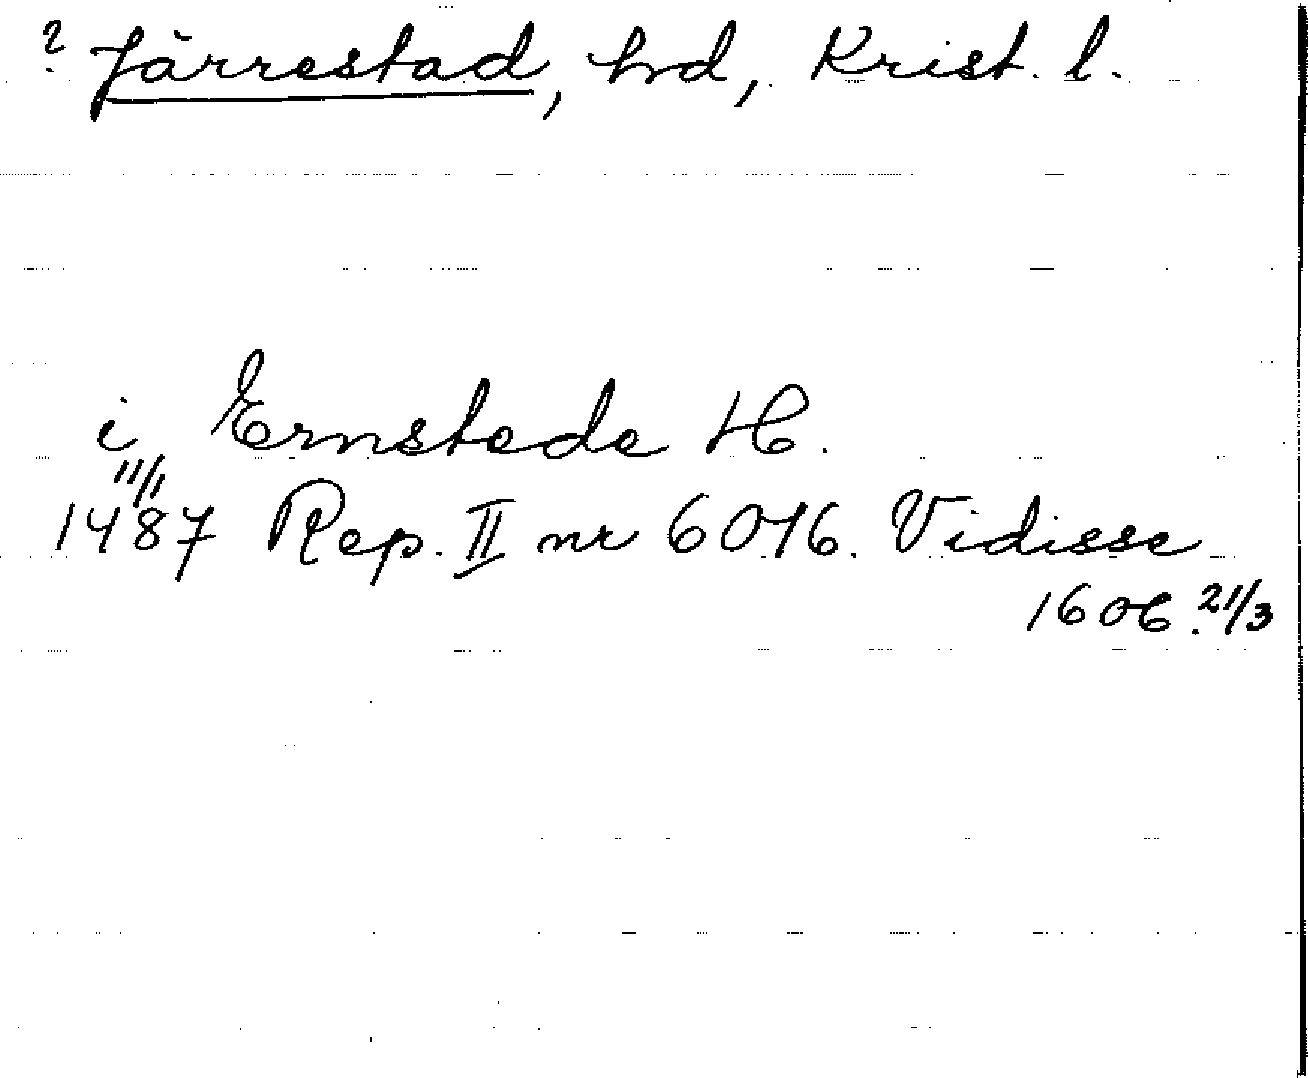 ? Järrestad, hd, Krist. l.
i Ernstede H.
11/1
1487 Rep. II nr 6016. Vidisse
1606. 21/3